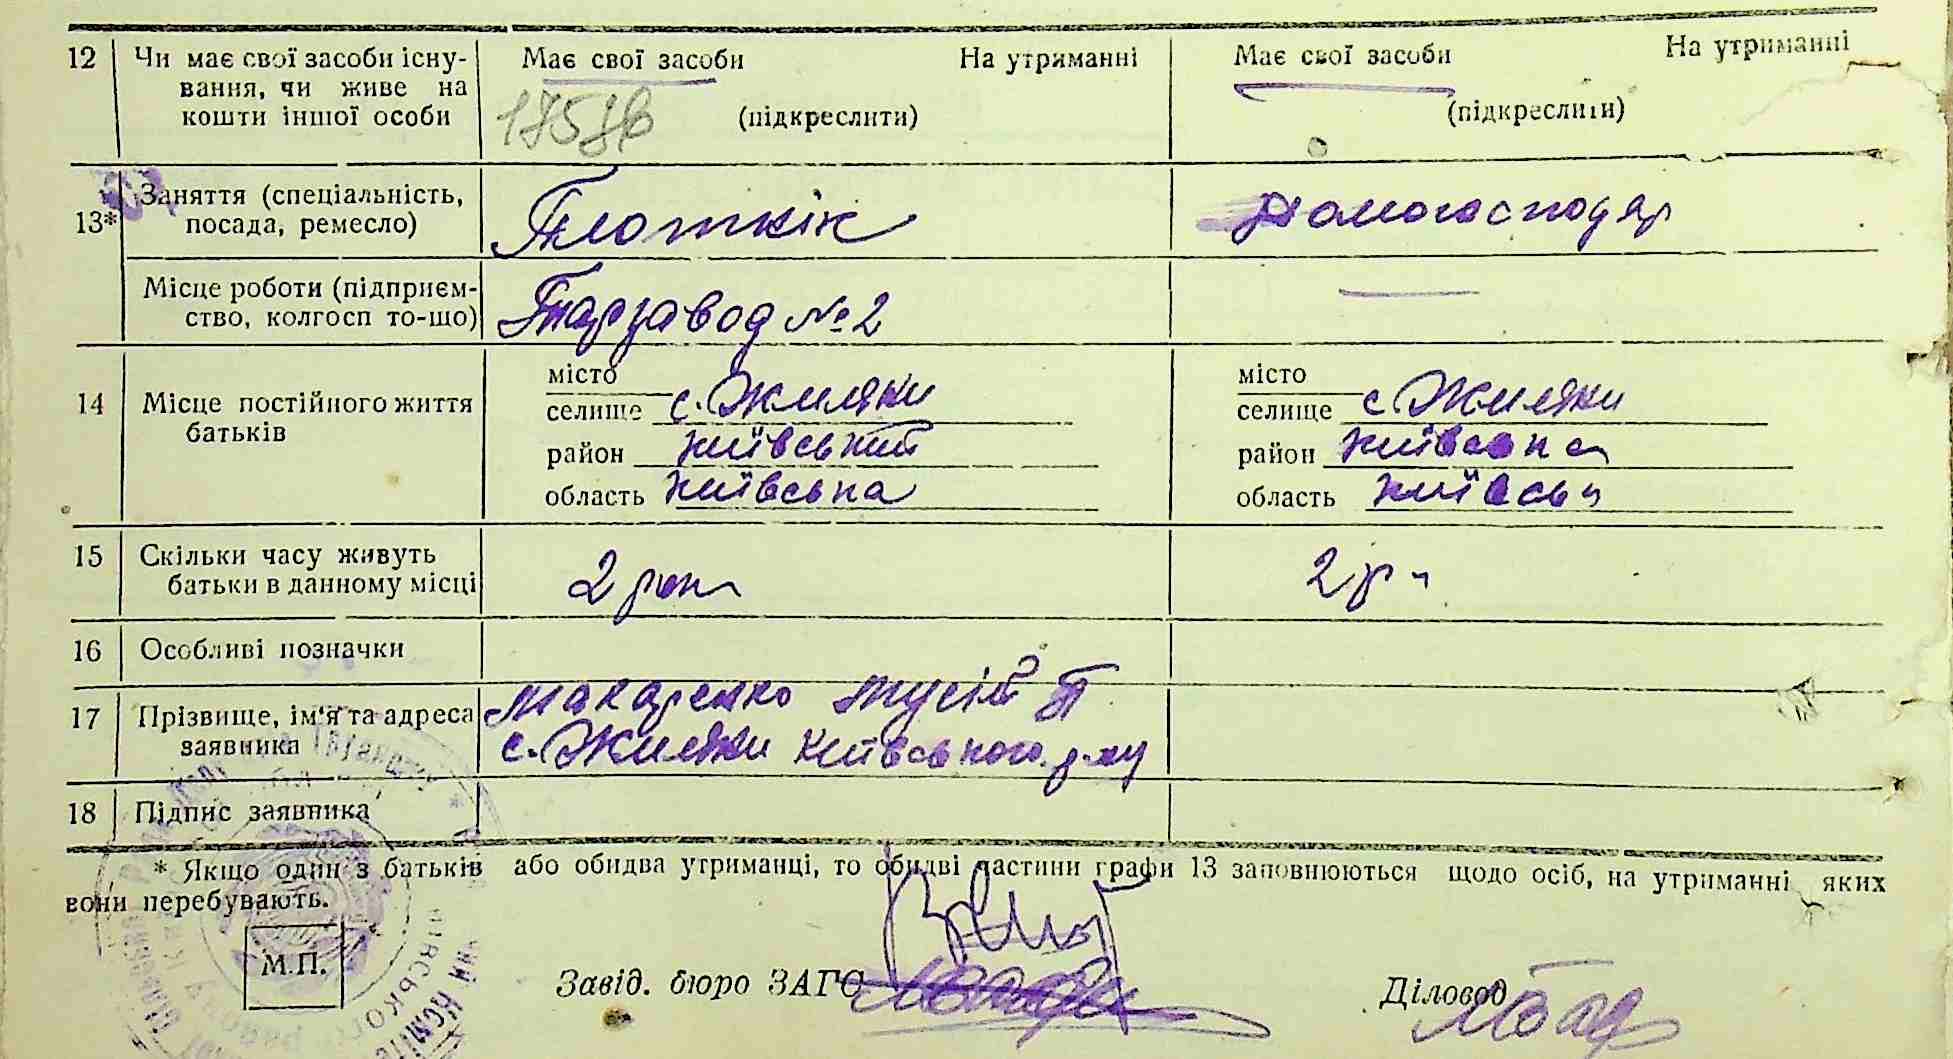 12 Чи має свої засоби існу- Має свої засоби На утриманні Має свої засоби На утриманні
вання, чи живе на
кошти іншої особи (підкреслити) (підкреслити)
13* Заняття (спеціальність,
посада, ремесло) Плотнік Домогосподар
Місце роботи (підприєм-
ство, колгосп то-що) Тарзавод №2 —
14 Місце постійного життя
батьків
місто місто
селище с. Жиляни селище с. Жиляни
район Київський район Київська
область Київська область
15 Скільки часу живуть
батьки в данному місці 2 рок 2 р
16 Особливі позначки
17 Прізвище, ім'я та адреса Макаренко Мусій П
заявника с. Жиляни Київського р-ну
18 Підпис заявника
* Якщо один з батьків або обидва утриманці, то обидві частини графи 13 заповнюються щодо осіб, на утриманні яких
вони перебувають.
М.П.
Завід. бюро ЗАГС Діловод